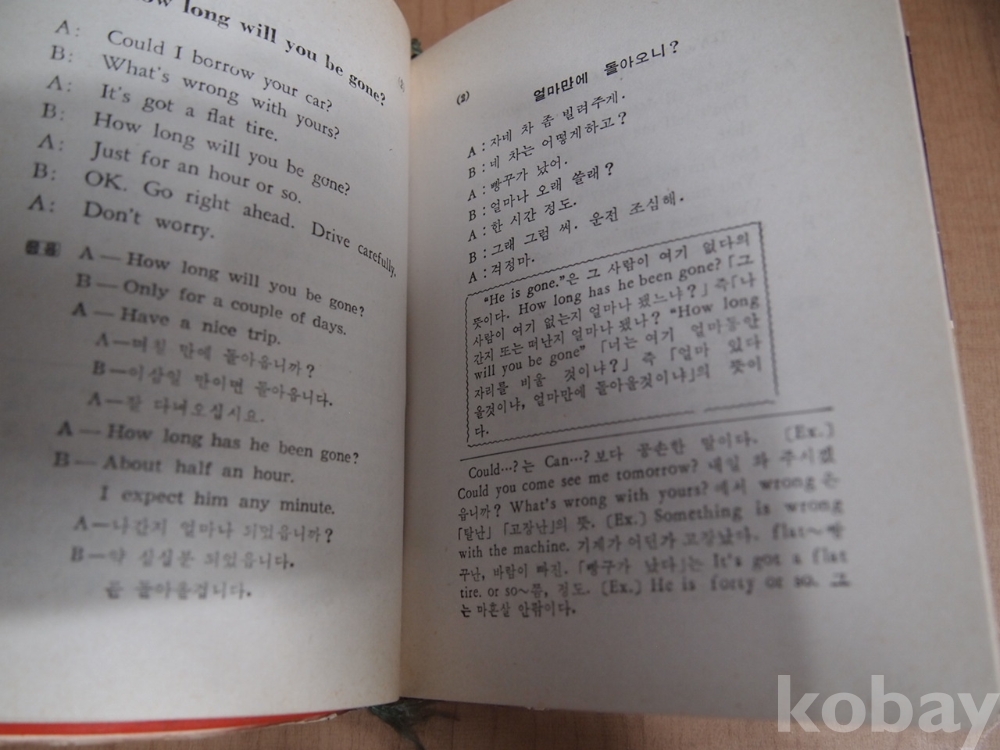 How long will you be gone?
A: Could I borrow your car?
B: What's wrong with yours?
A: It's got a flat tire.
B: How long will you be gone?
A: Just for an hour or so.
B: OK. Go right ahead. Drive carefully.
A: Don't worry.
A — How long will you be gone?
B — Only for a couple of days.
A — Have a nice trip.
A—며칠 만에 돌아옵니까?
B—이삼일 만이면 돌아옵니다.
A—잘 다녀오십시요.
A — How long has he been gone?
B — About half an hour.
I expect him any minute.
A—나간지 얼마나 되었읍니까?
B—약 삼십분 되었읍니다.
곧 돌아올겁니다.
(2) 얼마만에 돌아오니?
A : 자네 차 좀 빌려주게.
B : 네 차는 어떻게하고?
A : 빵꾸가 났어.
B : 얼마나 오래 쓸래?
A : 한 시간 정도.
B : 그래 그럼 써. 운전 조심해.
A : 걱정마.
"He is gone."은 그 사람이 여기 없다의
뜻이다. How long has he been gone?「그
사람이 여기 없는지 얼마나 됐느냐?」즉「나
간지 또는 떠난지 얼마나 됐나? "How long
will you be gone"「너는 여기 얼마동안
자리를 비울 것이냐?」즉「얼마 있다
올것이냐, 얼마만에 돌아올것이냐」의 뜻이
다.
Could…?는 Can…?보다 공손한 말이다. (Ex.)
Could you come see me tomorrow? 내일 와 주시겠
읍니까? What's wrong with yours?에서 wrong은
「탈난」「고장난」의 뜻. (Ex.) Something is wrong
with the machine. 기계가 어딘가 고장났다. flat~빵
꾸난, 바람이 빠진. 「빵꾸가 났다」는 It's got a flat
tire. or so~쯤, 정도. (Ex.) He is forty or so. 그
는 마흔살 안팎이다.
kobay